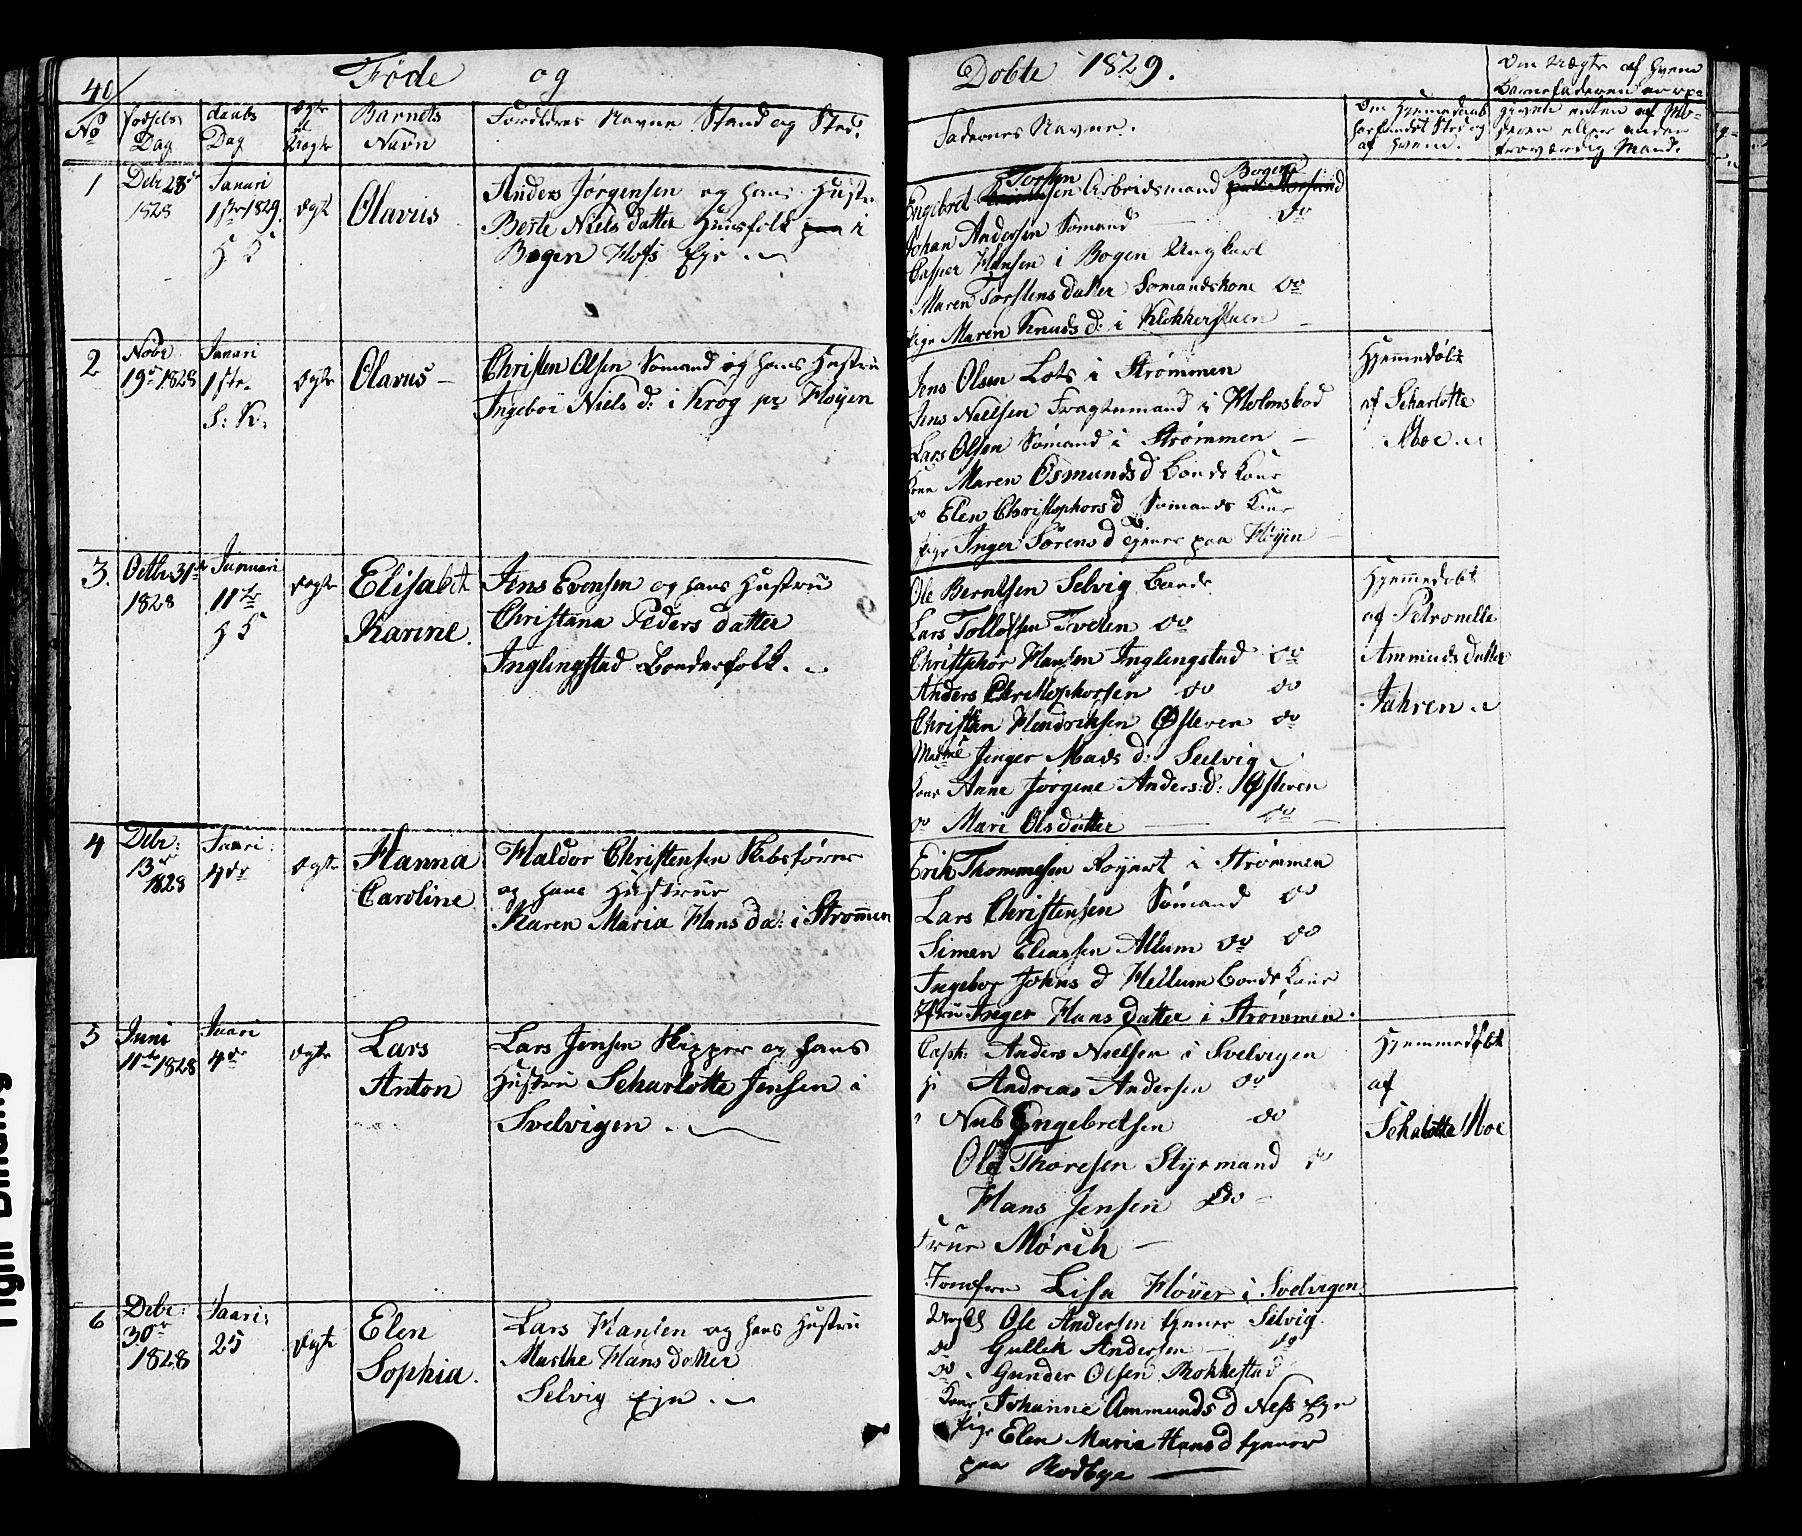 40/
Føde og Døbte 1829.
No
Fødsels Dag
daabs Dag
Ægte el Uægte
Barnets Navn
Forældres Navne Stand og Sted.
Fadernes Navne.
Om Hjemmedaab
forfandst Sted og
af hvem.
Om Uægte af hvem
Barnefaderen er opgiven enten af Moderen eller anden
troværdig Mand.
1
Debr 28de
1828
Januari
1ste 1829.
H K
Ægte
Olavus
Anders Jørgensen og hans Hustr
Berte Nielsdatter Huusfolk i
Bogen Hofs Eje
Engebret Torsten sen Arbeidsmand Bogen
Johan Andersen Sømand do
Casper Hansen i Bogen Ungkarl
Maren Torstensdatter Sømandskone do
Pige Maren Knuds d: i Klokkerstuen
2
Nobr
19de 1828
Januari
1ste
S: K:
Ægte
Olavus
Christen Olsen Sømand og hans Hustru
Ingebor Niels d: i Krog pr Høyen
Jens Olsen Lots i Strømmen
Jens Nielsen Fragtemand i Holmsbod
Lars Olsen Sømand i Strømmen
Kone Maren Osmunds d Bonde Kone
do Elen Christophors d Sømands Kone
Pige Inger Sørens d tjener paa Høyen
Hjemmedøbt
af Scharlotte
Moe
3.
Octbr 31te
1828
Januari
11te
H K
Ægte
Elisabet
Karine.
Jens Evensen og hans Hustru
Christana Peders datter
Inglingstad Bonderfolk.
Ole Berntsen Selvig Bonde
Lars Tollofsen Tveten do
Christophor Hansen Inglingstad do
Anders Christophorsen do do
Christen Hendriksen Østeren do
Madme Jenger Mads d: Selvig
Kone Anne Jørgene Anders: d: Østeren
do Mari Olsdatter do
Hjemmedøbt
af Petronelle
Ammundsdatter
Jahren
4
Debr:
13de
1828
Jaari:
4de
Ægte
Hanna
Caroline
Haldor Christensen Skibsfører
og hans Hustrue
Karen Maria Hans da: i Strømmen
Erik Thommesen Royert i Strømmen
Lars Christensen Sømand do
Simen Eliassen Allum do do
Ingebor Johns d Hellum Bonde Kone
Inger Hans datter i Strømmen.
5
Juni
11te 1828
Jaari
4de
Ægte
Lars
Anton
Lars Jensen Skipper og hans
Hustru Scharlotte Jensen i
Svelvigen
Capt: Anders Nielsen i Svelvigen
Hr Andreas Andersen do
" Nub Engebretsen do
Ole Thoresen Styrmand do
Hans Jensen do
Frue Mørch
Jomfru Lisa Fløyer i Svelvigen
Hjemmedøbt
af
Schalotte Moe
6
Debr:
30de
1828
Jaari:
25
Ægte
Elen
Sophia.
Lars Hansen og hans Hustru
Marthe Hansdatter
Selvig Eje
Ungkl Ole Andersen tjener Selvig
do Gullek Andersen do
do Gunder Olsen Rokkestad
Kone Johanne Ammunds d Ness Eje
Pige Elen Maria Hans d tjener
paa Rodbye